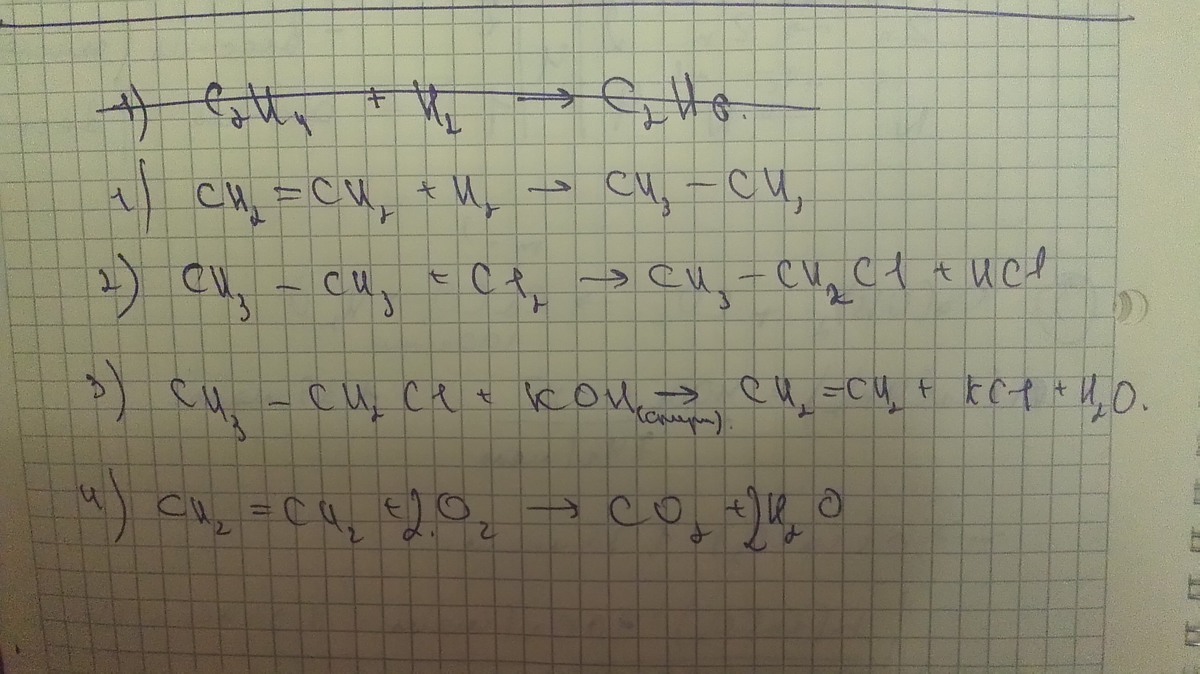 1) C₂H₄ + H₂ → C₂H₆.
1) CH₂ = CH₂ + H₂ → CH₃ – CH₃
2) CH₃ – CH₃ + Cl₂ → CH₃ – CH₂Cl + HCl
3) CH₃ – CH₂ Cl + KOH (спирт). → CH₂ = CH₂ + KCl + H₂O.
4) CH₂ = CH₂ + 2O₂ → CO₂ + 2H₂O